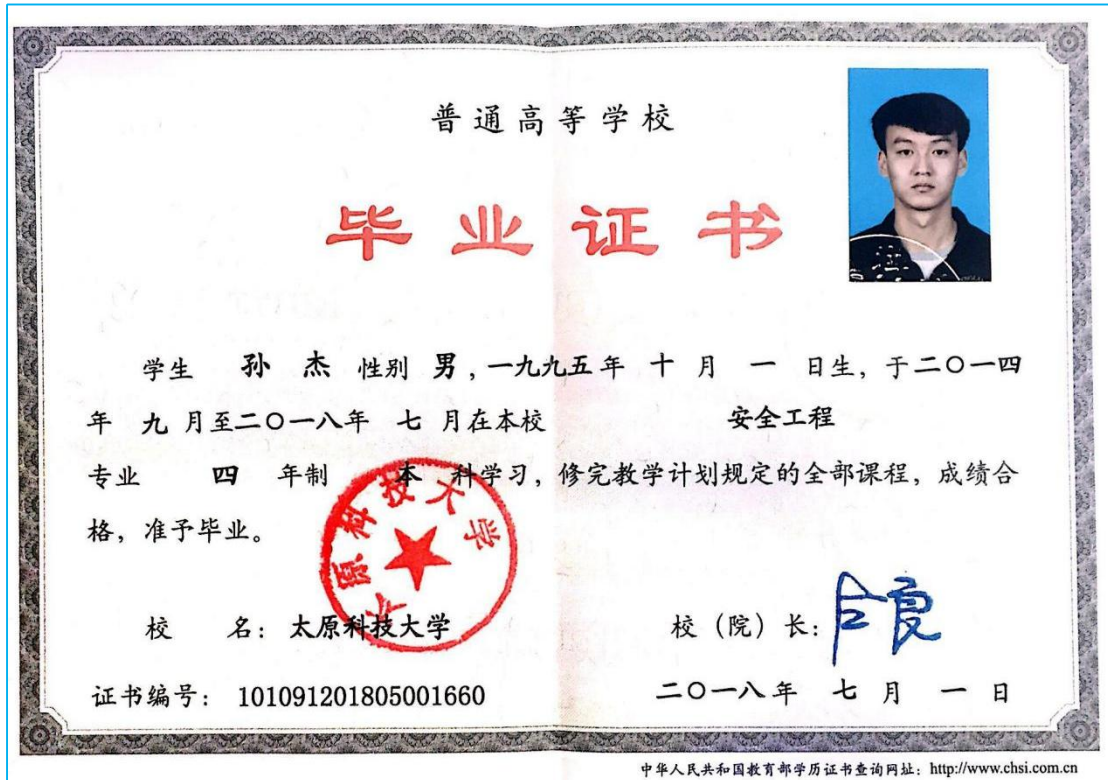 普通高等学校
毕业证书
学生 孙 杰 性别 男，一九九五年 十 月 一 日生，于二〇一四
年 九 月至二〇一八年 七 月在本校 安全工程
专业 四 年制 本 科学习，修完教学计划规定的全部课程，成绩合
格，准予毕业。
太原科技大学
校 名：太原科技大学 校（院）长：
证书编号：101091201805001660 二〇一八年 七 月 一 日
中华人民共和国教育部学历证书查询网址：http://www.chsi.com.cn